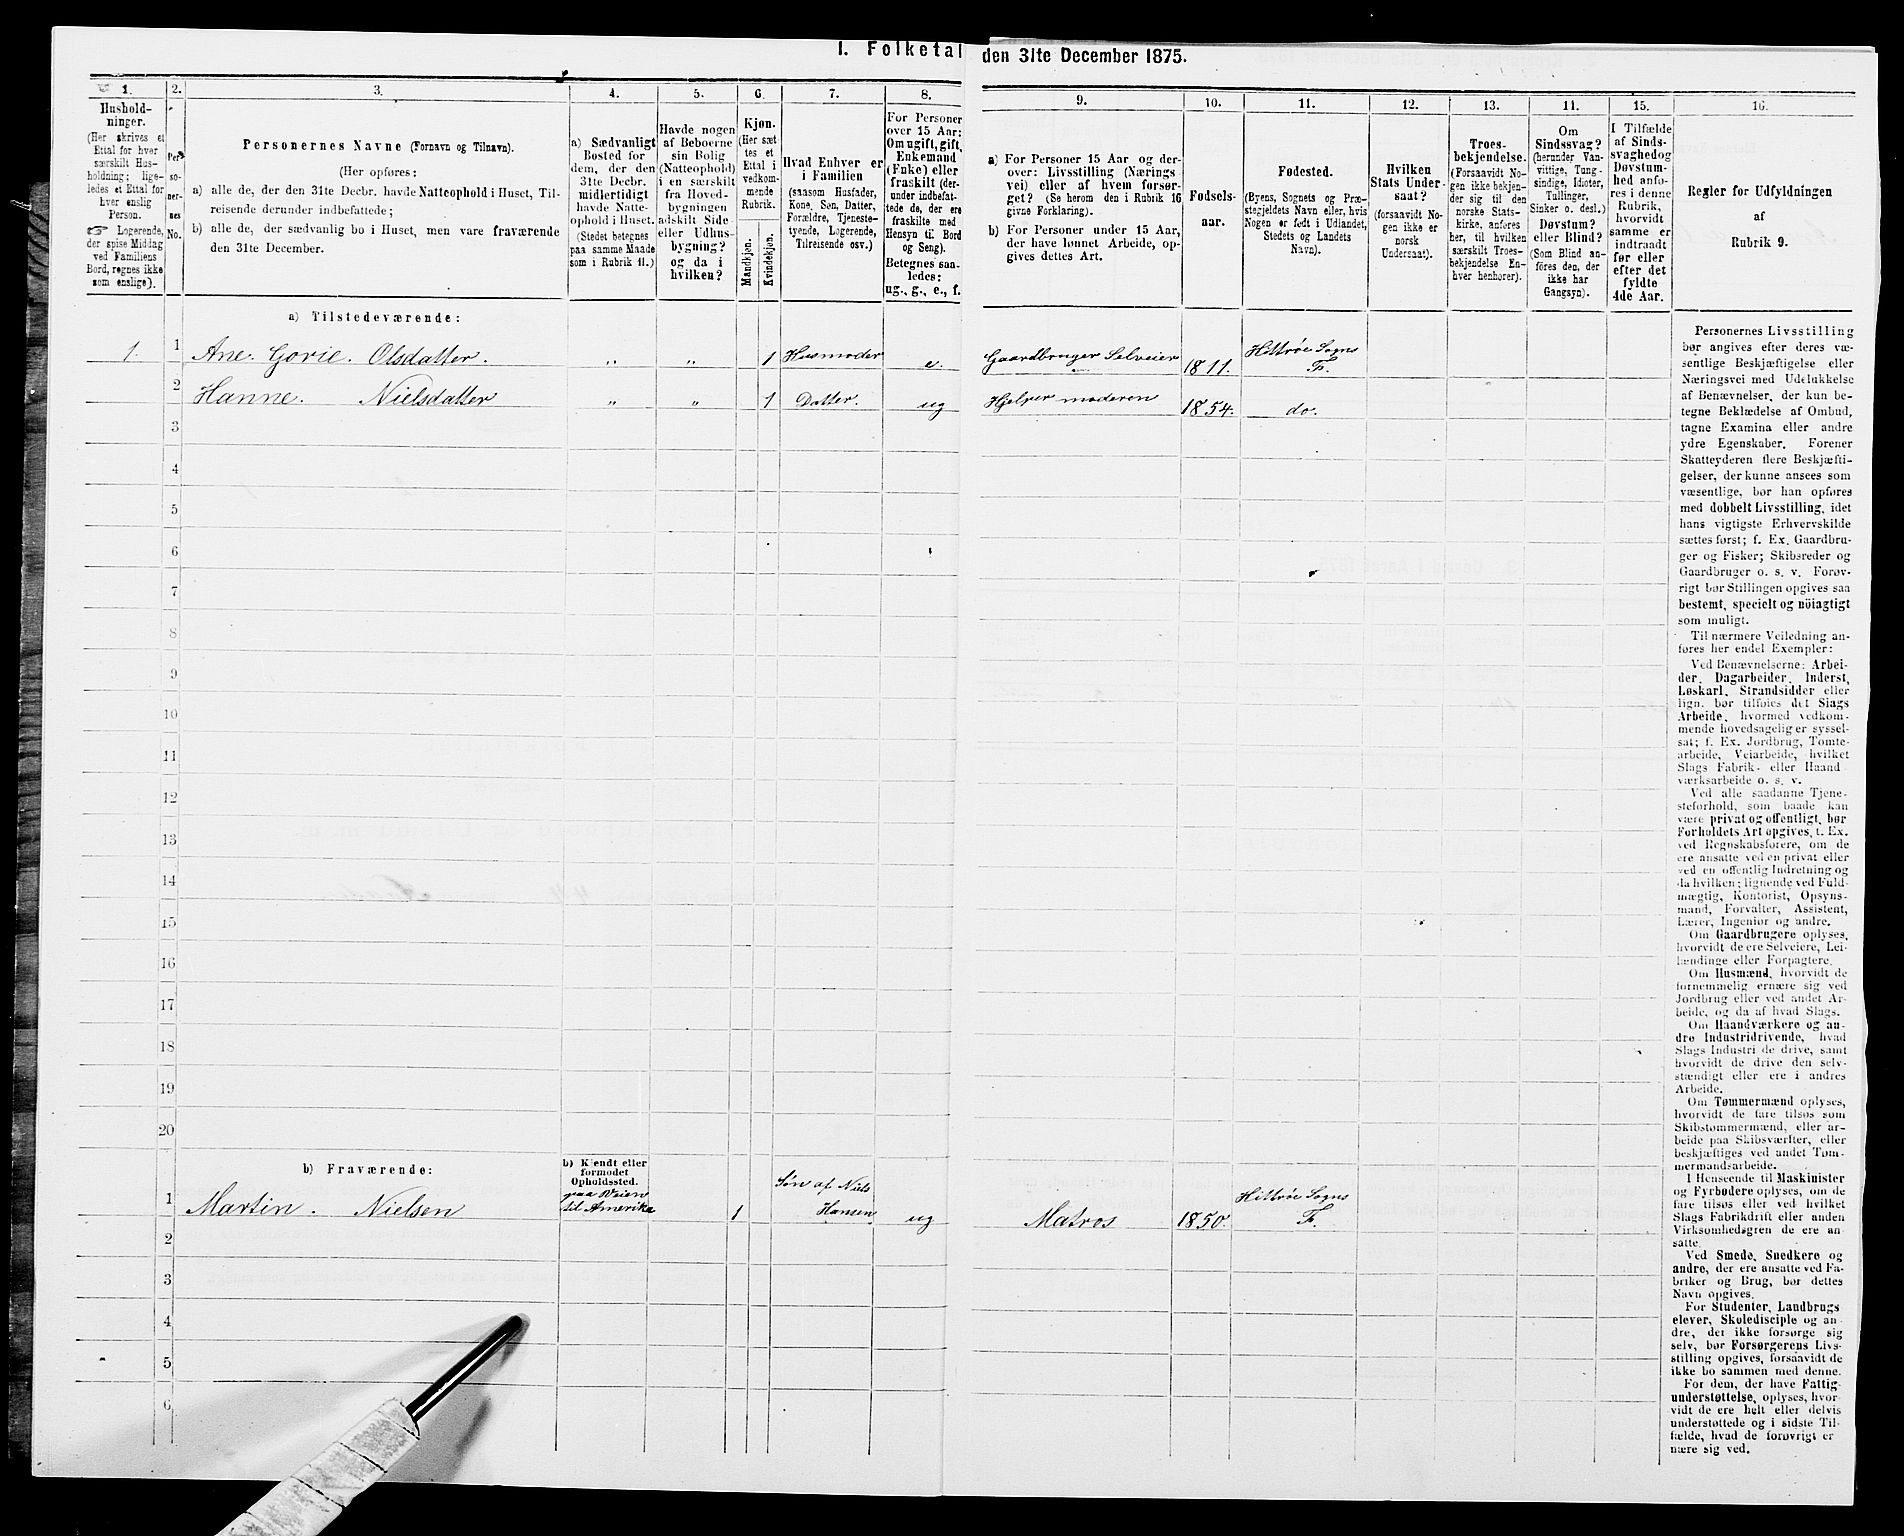 I. Folketal den 31te December 1875.
1.
Hushold-
ninger.
(Her skrives et
Ettal for hver
særskilt Hus-
holdning; lige-
ledes et Ettal for
hver enslig
Person.
☞ Logerende,
der spise Middag
ved Familiens
Bord, regnes ikke
som enslige).
2.
Per-
so-
ner-
nes
No.
3.
Personernes Navne (Fornavn og Tilnavn).
(Her opføres:
a) alle de, der den 31te Decbr. havde Natteophold i Huset, Til-
reisende derunder indbefattede;
b) alle de, der sædvanlig bo i Huset, men vare fraværende
den 31te December.
4.
a) Sædvanligt
Bosted for
dem, der den
31te Decbr.
midlertidigt
havde Natte-
ophold i Huset.
(Stedet betegnes
paa samme Maade
som i Rubrik 11.)
5.
Havde nogen
af Beboerne
sin Bolig
(Natteophold)
i en særskilt
fra Hoved-
bygningen
adskilt Side-
eller Udhus-
bygning?
og da i
hvilken?
6.
Kjøn.
(Her sæt
tes et
Ettal i
vedkom-
mende
Rubrik.
Mandkjøn.
Kvindekjøn.
7.
Hvad Enhver er
i Familien
(saasom Husfader,
Kone, Søn, Datter,
Forældre, Tjeneste-
tyende, Logerende,
Tilreisende osv.)
8.
For Personer
over 15 Aar:
Om ugift, gift,
Enkemand
(Enke) eller
fraskilt (der-
under indbefat-
tede de, der ere
fraskilte med
Hensyn til Bord
og Seng).
Betegnes saa-
ledes:
ug., g., e., f.
9.
a) For Personer 15 Aar og der-
over: Livsstilling (Nærings
vei) eller af hvem forsør-
get? (Se herom den i Rubrik 16
givne Forklaring).
b) For Personer under 15 Aar,
der have lønnet Arbeide, op-
gives dettes Art.
10.
Fødsels-
aar.
11.
Fødested.
(Byens, Sognets og Præ-
stegjeldets Navn eller, hvis
Nogen er født i Udlandet,
Stedets og Landets
Navn).
12.
Hvilken
Stats Under-
saat?
(forsaavidt No-
gen ikke er
norsk
Undersaat).
13.
Troes-
bekjendelse.
(Forsaavidt No-
gen ikke bekjen-
der sig til den
norske Stats-
kirke, anføres
her, til hvilken
særskilt Troes-
bekjendelse En-
hver henhører).
11.
Om
Sindssvag?
(herunder Van-
vittige, Tung-
sindige, Idioter,
Tullinger,
Sinker o. desl.)
Døvstum?
eller Blind?
(Som Blind an-
føres den, der
ikke har
Gangsyn).
15.
I Tilfælde
af Sinds-
svaghedog
Døvstum-
hed anfø-
res i denne
Rubrik,
hvorvidt
samme er
indtraadt
før eller
efter det
fyldte
4de Aar.
16.
Regler for Udfyldningen
af
Rubrik 9.
a) Tilstedeværende:
1. 1 Ane. Gorie. Olsdatter. „ „ 1 Husmoder e. Gaardbruger Selveier 1811. Hittrøe Sogns F.
2 Hanne. Nielsdatter „ „ 1 Datter. ug Hjelper moderen 1854. do.
3
4
5
6
7
8
9
10
11
12
13
14
15
16
17
18
19
20
b) Fraværende:
b) Kjendt eller
formodet
Opholdssted.
1 Martin. Nielsen paa Veien til Amerika 1 Søn af Niels Hansen ug Matros 1850. Hittrøe Sogns F.
2
3
4
5
6
Personernes Livsstilling
bør angives efter deres væ-
sentlige Beskjæftigelse eller
Næringsvei med Udelukkelse
af Benævnelser, der kun be-
tegne Beklædelse af Ombud,
tagne Examina eller andre
ydre Egenskaber. Forener
Skatteyderen flere Beskjæfti-
gelser, der kunne ansees som
væsentlige, bør han opføres
med dobbelt Livsstilling, idet
hans vigtigste Erhvervskilde
sættes først; f. Ex. Gaardbru-
ger og Fisker; Skibsreder og
Gaardbruger o. s. v. Forøv-
rigt bør Stillingen opgives saa
bestemt, specielt og nöiagtigt
som muligt.
Til nærmere Veiledning an-
føres her endel Exempler:
Ved Benævnelserne: Arbei-
der, Dagarbeider, Inderst,
Løskarl, Strandsidder eller
lign. bør tilføies det Slags
Arbeide, hvormed vedkom-
mende hovedsagelig er syssel-
sat; f. Ex. Jordbrug, Tomte-
arbeide, Veiarbeide, hvilket
Slags Fabrik- eller Haand
værksarbeide o. s. v.
Ved alle saadanne Tjene-
steforhold, som baade kan
være privat og offentligt, bør
Forholdets Art opgives, t. Ex.
ved Regnskabsførere, om de
ere ansatte ved en privat eller
ved en offentlig Indretning og
da hvilken; lignende ved Fuld-
mægtig, Kontorist, Opsyns-
mand, Forvalter, Assistent,
Lærer, Ingeniør og andre.
Om Gaardbrugere oplyses,
hvorvidt de ere Selveiere, Lei-
lændinge eller Forpagtere.
Om Husmænd, hvorvidt de
fornemmelig ernære sig ved
Jordbrug eller ved andet Ar-
beide, og da af hvad Slags.
Om Haandværkere og an-
dre Industridrivende, hvad
Slags Industri de drive, samt
hvorvidt de drive den selv-
stændigt eller ere i andres
Arbeide.
Om Tømmermænd oplyses,
hvorvidt de fare tilsøs som
Skibstømmermænd, eller ar-
beide paa Skibsværfter, eller
beskjæftiges ved andet Tøm-
mermandsarbeide.
I Henseende til Maskinister
og Fyrbødere oplyses, om de
fare tilsøs eller ved hvilket
Slags Fabrikdrift eller anden
Virksomhedsgren de ere an-
satte.
Ved Smede, Snedkere og
andre, der ere ansatte ved Fa-
briker og Brug, bør dettes
Navn opgives.
For Studenter, Landbrugs
elever, Skoledisciple og an
dre, der ikke forsørge sig
selv, bør Forsørgerens Livs-
stilling opgives, forsaavidt de
ikke bo sammen med denne.
For dem, der have Fattig-
understøttelse, oplyses, hvor-
vidt de ere helt eller delvis
understøttede og i sidste Til-
fælde, hvad de forøvrigt er
nære sig ved.